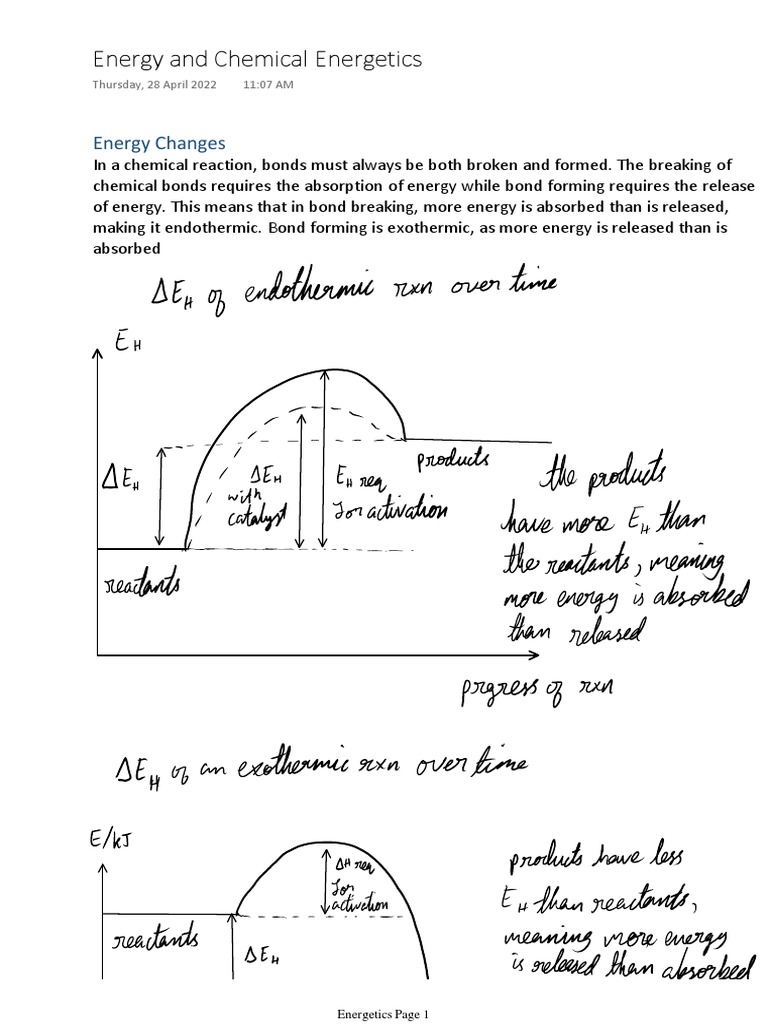 Energy and Chemical Energetics
Thursday, 28 April 2022 11:07 AM
Energy Changes
In a chemical reaction, bonds must always be both broken and formed. The breaking of
chemical bonds requires the absorption of energy while bond forming requires the release
of energy. This means that in bond breaking, more energy is absorbed than is released,
making it endothermic. Bond forming is exothermic, as more energy is released than is
absorbed
ΔE_H of endothermic rxn over time
E_H
ΔE_H
ΔE_H
with
catalyst
E_H req
for activation
products
reactants
the products
have more E_H than
the reactants, meaning
more energy is absorbed
than released
prgress of rxn
ΔE_H of an exothermic rxn over time
E/kJ
reactants
ΔE_H
ΔH req
for
activation
products have less
E_H than reactants,
meaning more energy
is released than absorbed
Energetics Page 1